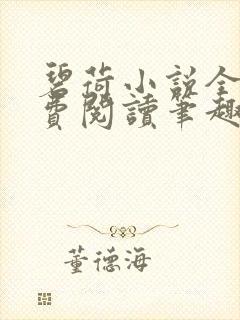 碧荷小説全
費閱讀筆趣
董德海